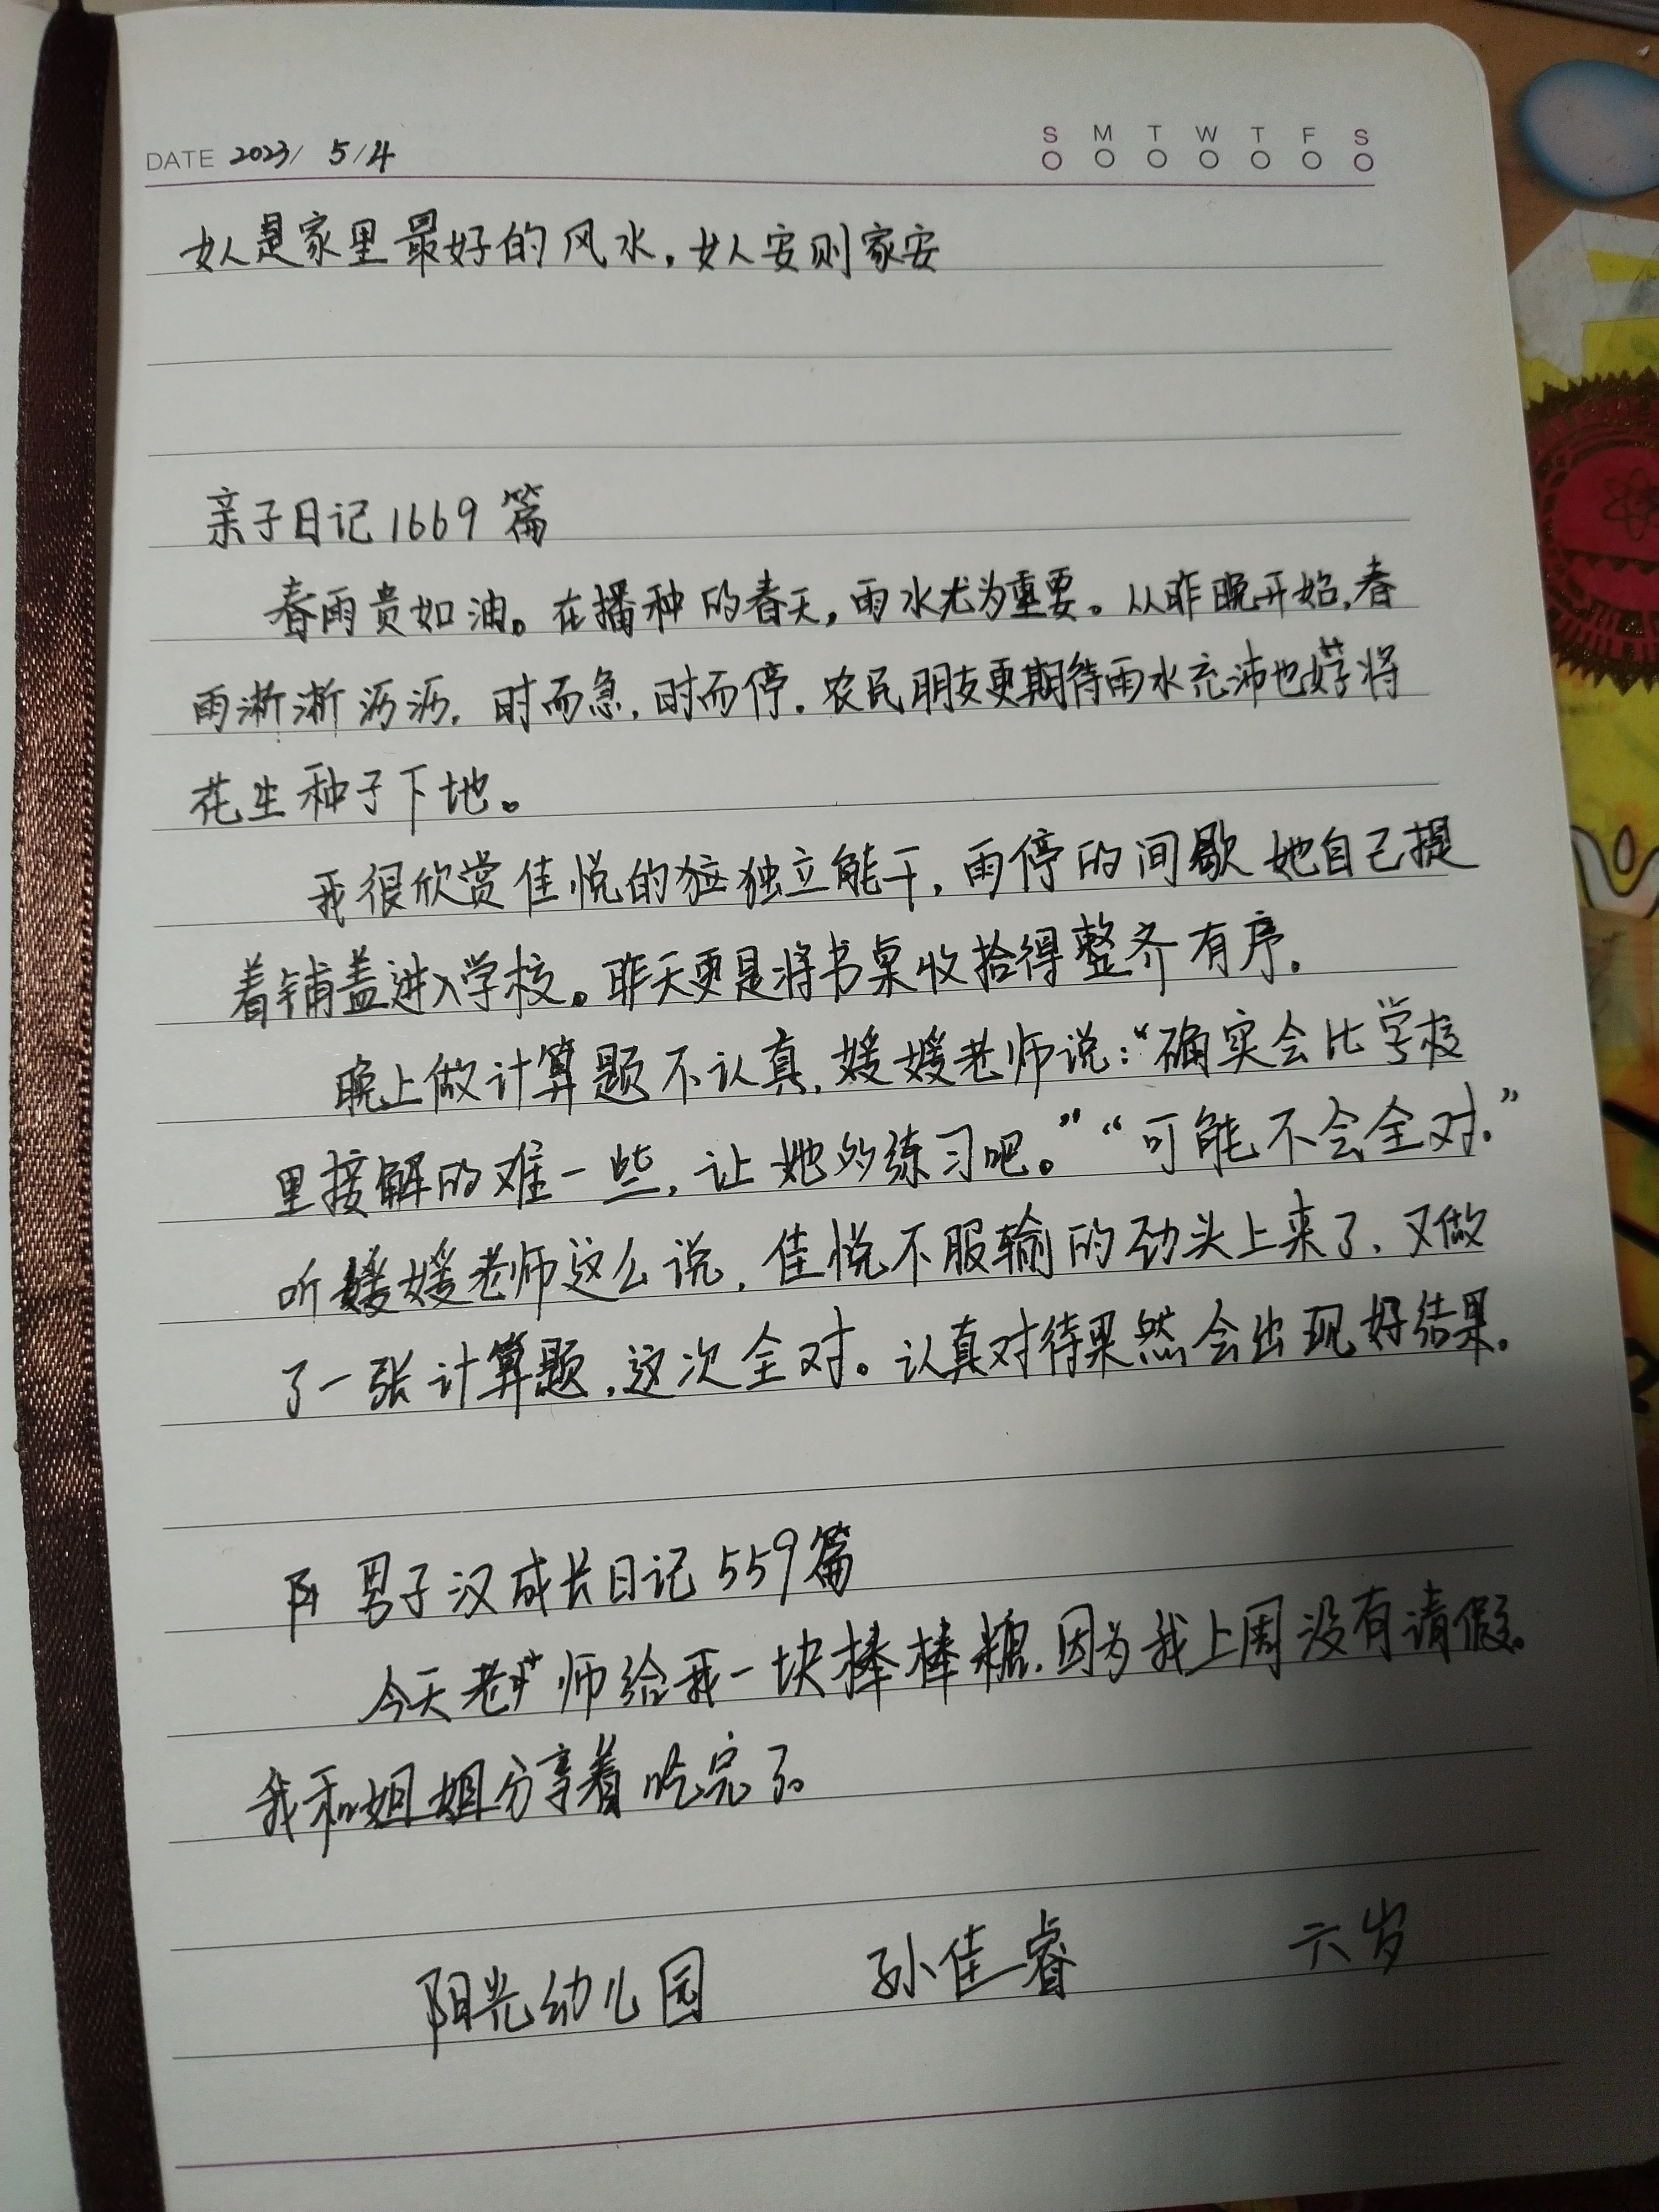 S M T W T F S
DATE 2023/ 5/4
女人是家里最好的风水，女人安则家安
亲子日记1669篇
春雨贵如油。在播种的春天，雨水尤为重要。从昨晚开始，春
雨淅淅沥沥，时而急，时而停。农民朋友更期待雨水充沛也好将
花生种子下地。
我很欣赏佳悦的独立能干，雨停的间歇她自己提
着铺盖进入学校。昨天更是将书桌收拾得整齐有序。
晚上做计算题不认真，媛媛老师说：“确实会比学校
里接解的难一些，让她的练习吧。”“可能不会全对。”
听媛媛老师这么说，佳悦不服输的劲头上来了，又做
了一张计算题，这次全对。认真对待果然会出现好结果。
男子汉成长日记559篇
今天老师给我一块棒棒糖，因为我上周没有请假。
我和姐姐分享着吃完了。
阳光幼儿园 孙佳睿 六岁